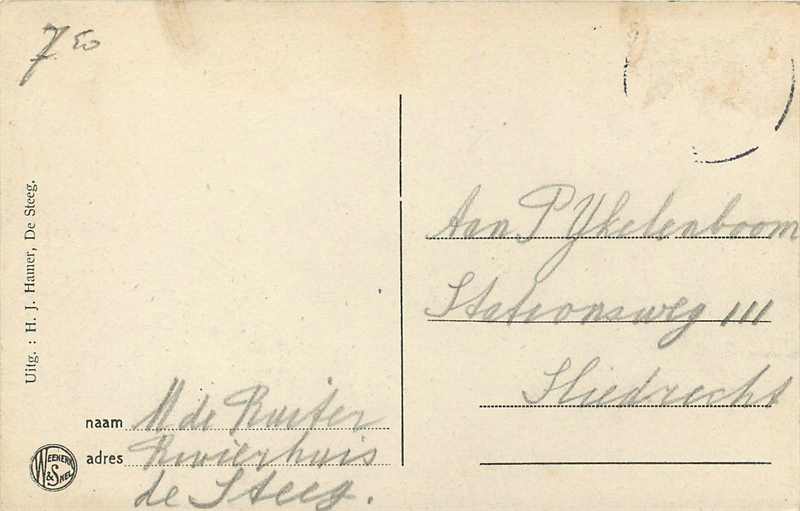 7 50
Uitg. : H. J. Hamer, De Steeg.
Aan P Ykelenboom
Stationsweg 111
Sliedrecht
naam M de Ruiter
adres Rivièrhuis
de Steeg.
WEENENK & SNEL